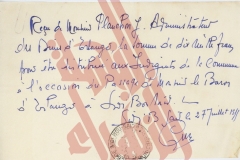 Reçu de Monsieur Planchon J. Administrateur
du Baron d'Erlanger la somme de dix mille francs
pour être distribués aux Indigents de la Commune
à l'occasion du Passage de Monsieur le Baron
d'Erlanger à Sidi Bou Saïd
Sidi Bou Saïd le 27 Juillet